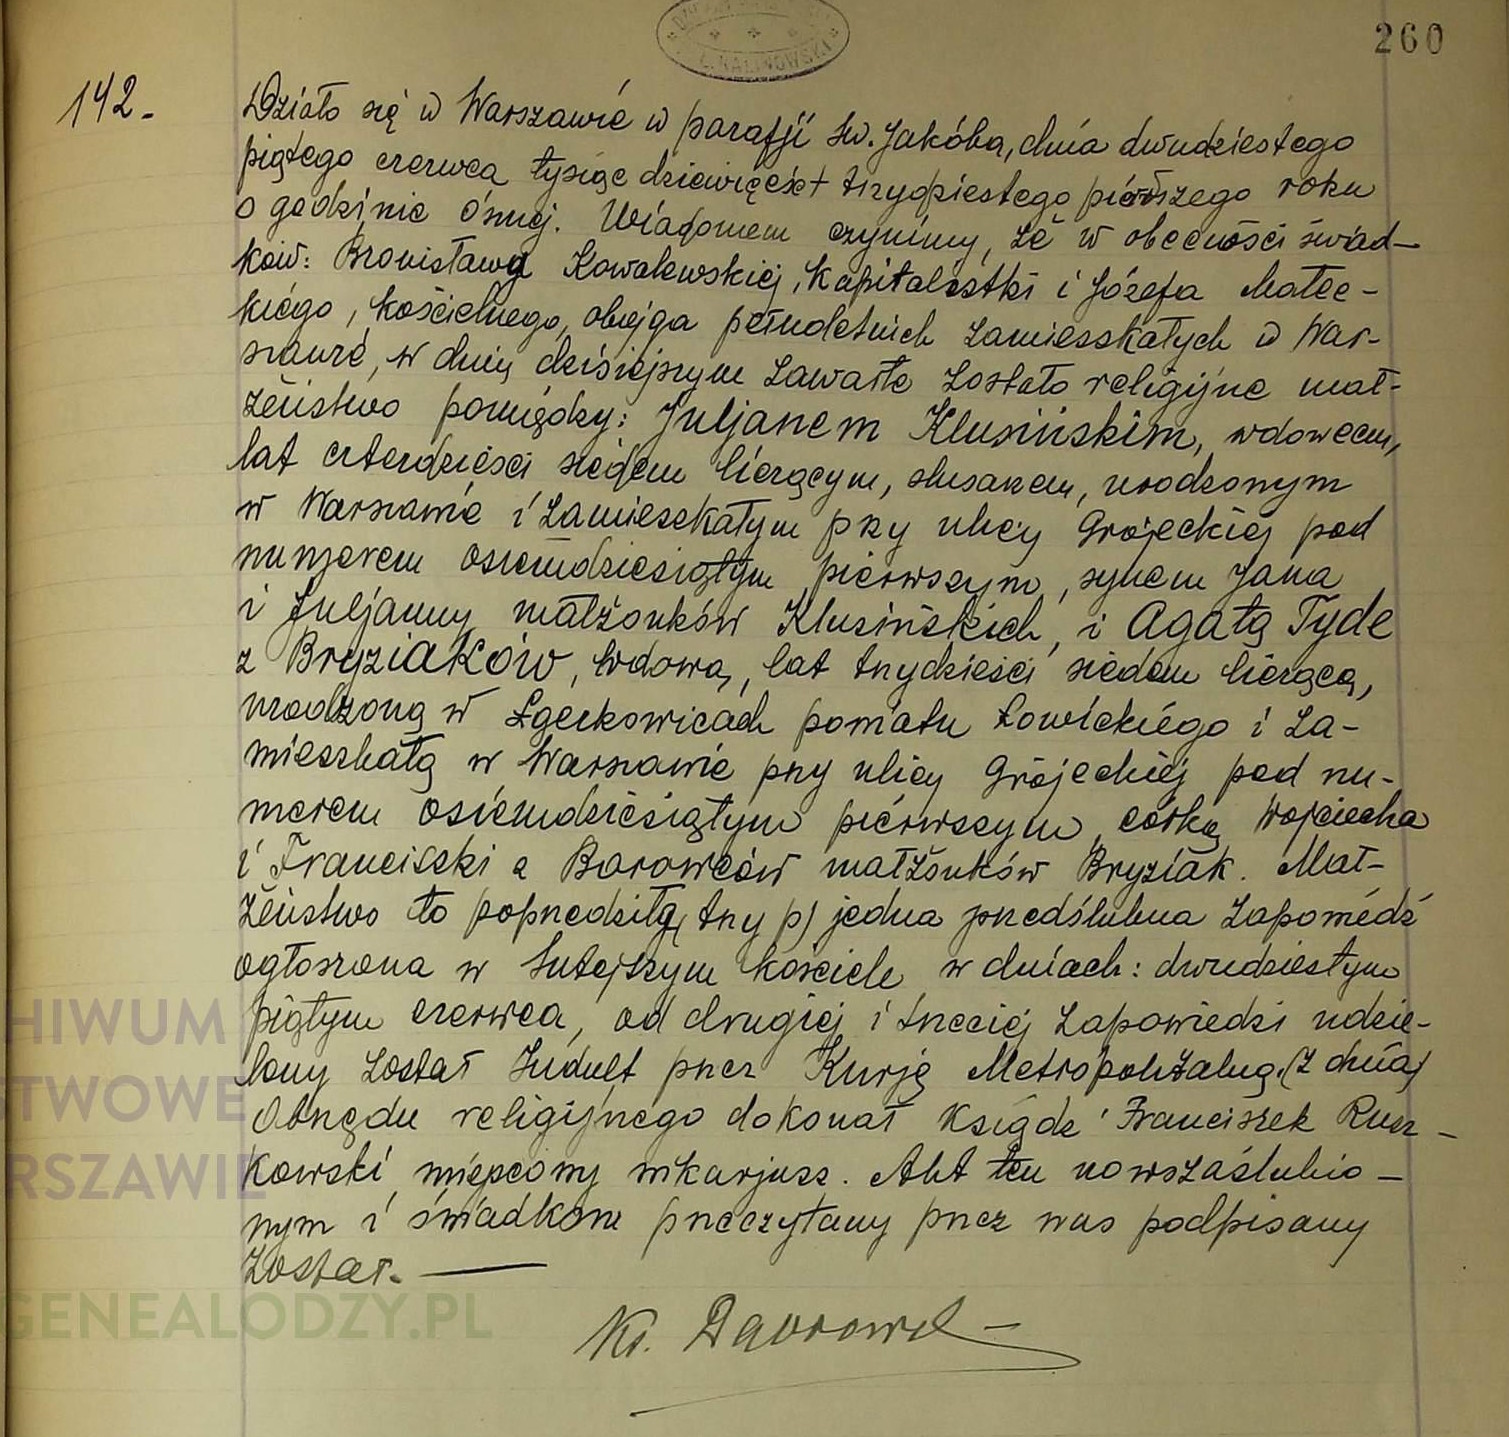 260
142.
Działo się w Warszawie w parafji św. Jakóba, dnia dwudziestego
piątego czerwca tysiąc dziewięćset trzydziestego pierwszego roku
o godzinie ósmej. Wiadomem czynimy, że w obecności świad-
ków: Bronisławy Kowalewskiej, kapitalistki i Józefa Małec-
kiego, kościelnego, obojga pełnoletnich zamieszkałych w War-
szawie, w dniu dzisiejszym zawarte zostało religijne mał-
żeństwo pomiędzy: Juljanem Klusińskim, wdowcem,
lat czterdzieści siedem liczącym, ślusarzem, urodzonym
w Warszawie i zamieszkałym przy ulicy Grójeckiej pod
numerem osiemdziesiątym pierwszym, synem Jana
i Juljanny małżonków Klusińskich, i Agatą Tyde
z Bryziaków, wdową, lat trzydzieści siedem liczącą,
urodzoną w Łguszkowicach powiatu Łowickiego i za-
mieszkałą w Warszawie przy ulicy Grójeckiej pod nu-
merem osiemdziesiątym pierwszym, córką Wojciecha
i Franciszki z Borowców małżonków Bryziak. Mał-
żeństwo to poprzedziła (trzy p) jedna przedślubna zapowiedź
ogłoszona w tutejszym kościele w dniach: dwudziestym
piątym czerwca, od drugiej i trzeciej zapowiedzi udzie-
lony został Indult przez Kurję Metropolitalną. (z dnia)
Obrzędu religijnego dokonał Ksiądz Franciszek Rusz-
kowski miejscowy wikarjusz. Akt ten nowozaślubio-
nym i świadkom przeczytany przez nas podpisany
został.
Ks.
HIWUM
TWOWE
RSZAWIE
GENEALODZY.PL